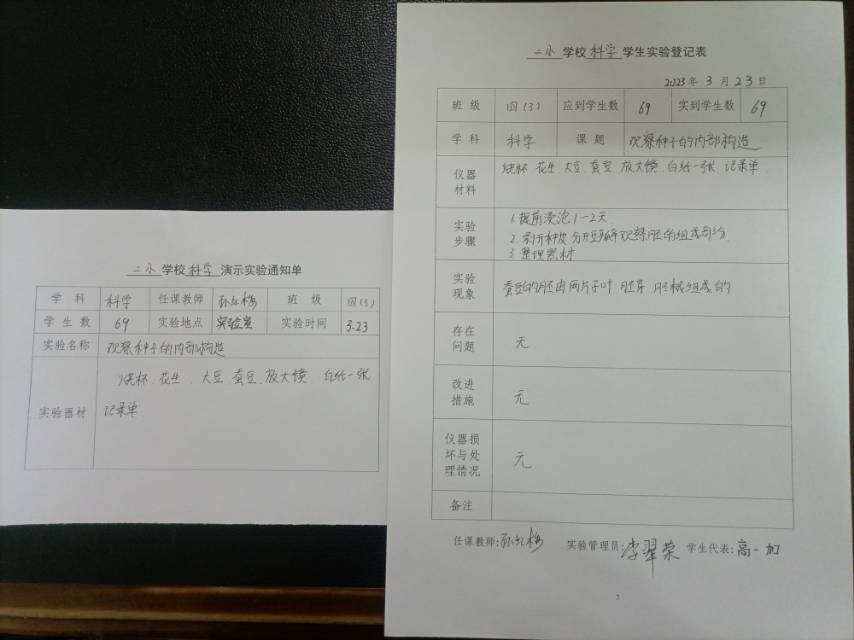 二小 学校 科学 演示实验通知单
学 科 科学 任课教师 孙红梅 班 级 四(3)
学 生 数 69 实验地点 实验室 实验时间 3.23
实验名称 观察种子的内部构造
实验器材 烧杯、花生、大豆、蚕豆、放大镜、白纸一张
记录单
二小 学校 科学 学生实验登记表
2023年 3 月 23 日
班 级 四(3) 应到学生数 69 实到学生数 69
学 科 科学 课 题 观察种子的内部构造
仪器材料 烧杯 花生、大豆、蚕豆 放大镜、白纸一张、记录单
实验步骤 1.提前浸泡1-2天
2.剥开种皮 分开 观察胚的组成部分
3.整理器材
实验现象 蚕豆的胚由两片子叶、胚芽、胚根组成的
存在问题 无
改进措施 无
仪器损坏与处理情况 无
备注
任课教师:孙红梅 实验管理员:李翠荣 学生代表:高一加